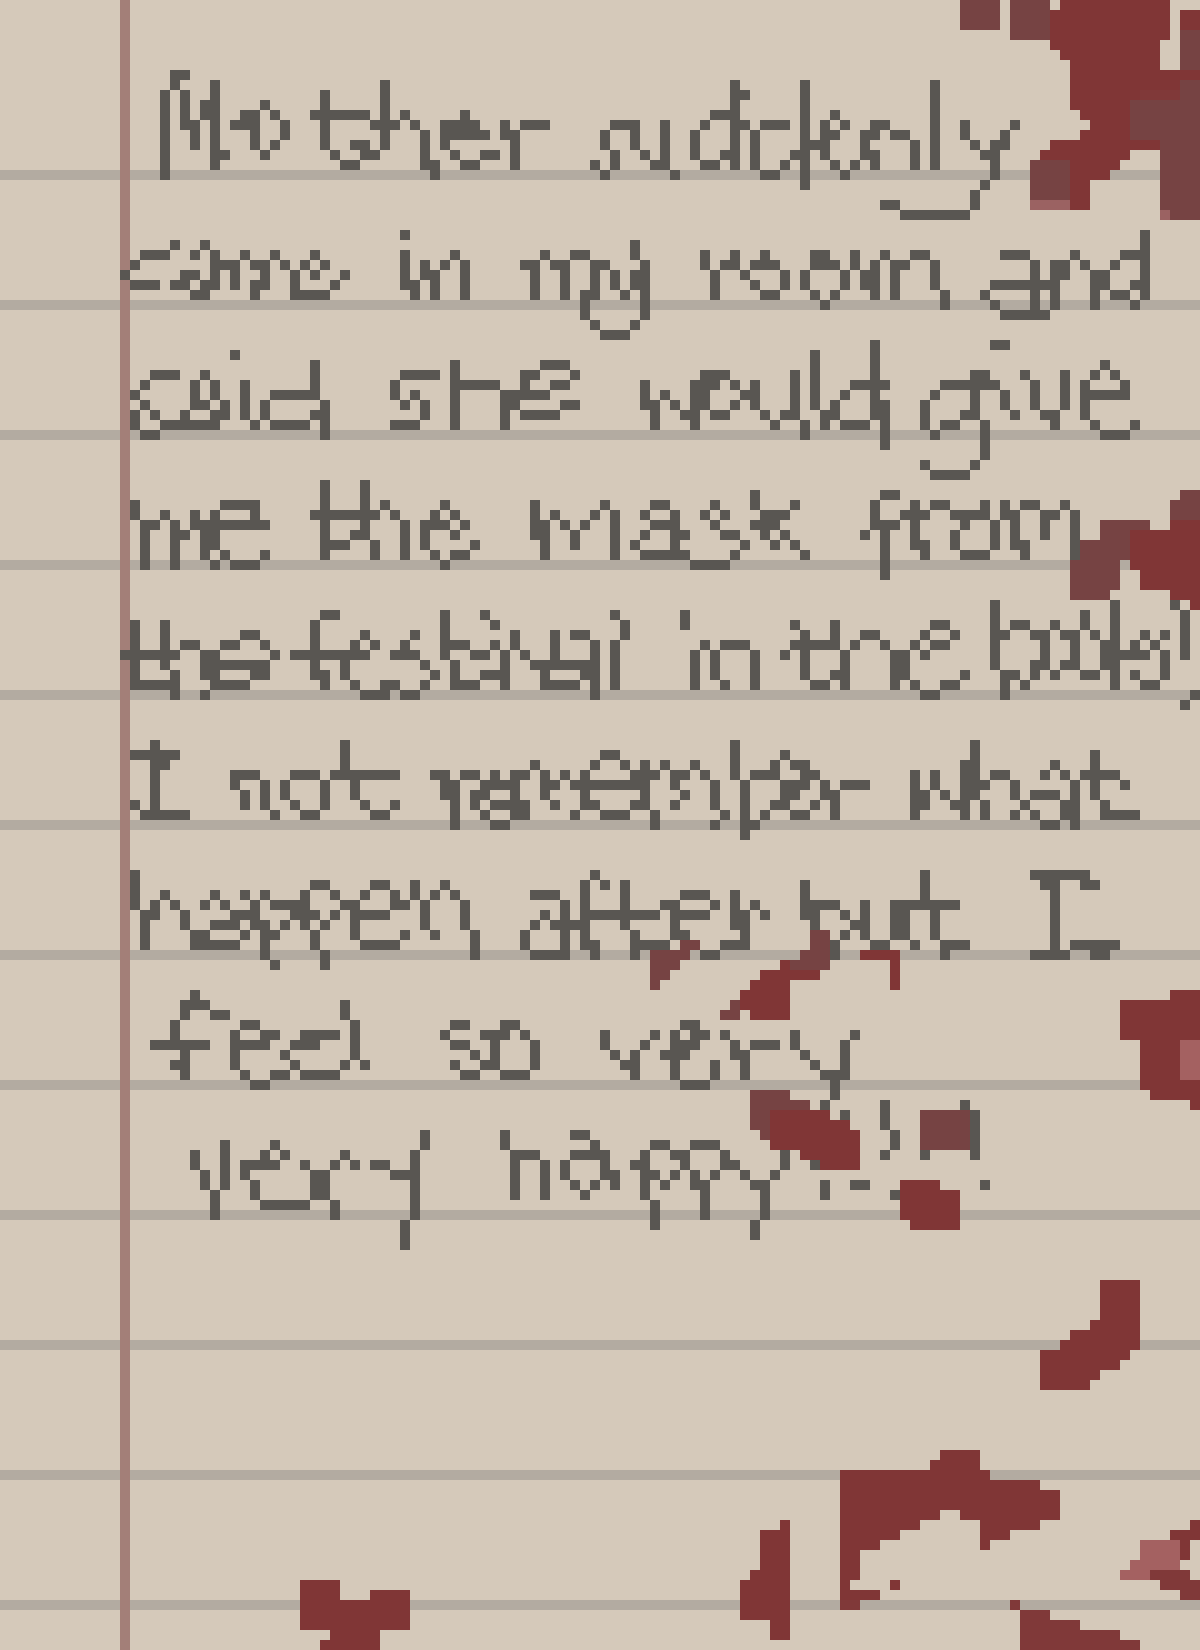 Mother suddenly
came in my room and
said she would give
me the mask from
the festival in the books!
I not remember what
happen after but I
feel so very
very happy